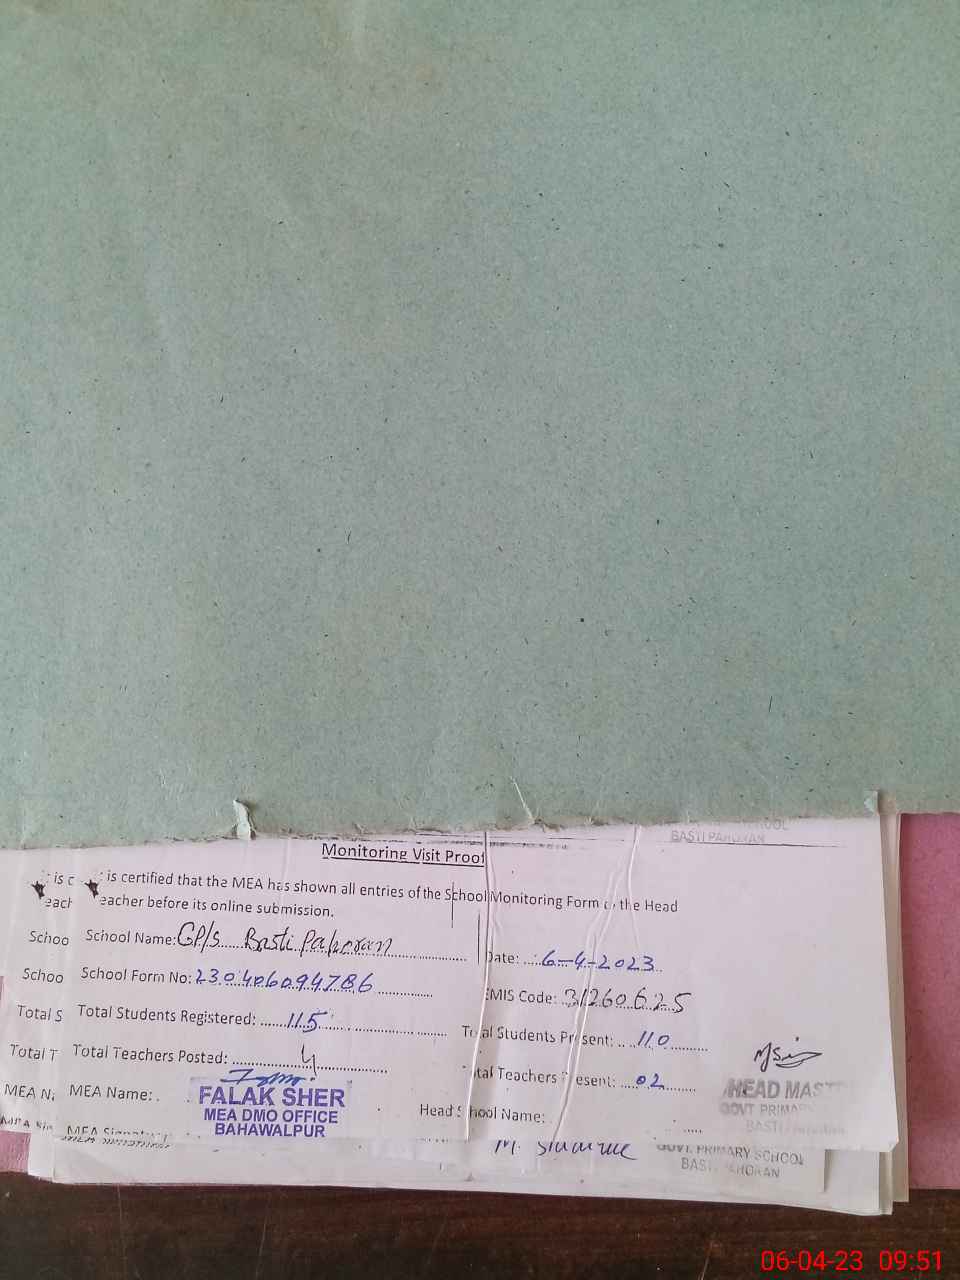 BASTI PAHORAN
Monitoring Visit Proof
is certified that the MEA has shown all entries of the School Monitoring Form the Head
eacher before its online submission.
School Name: GP/s Basti Pahoran
Date: 6-4-2023
School Form No: 230406094786
EMIS Code: 31260625
Total Students Registered: 115
Total Students Present: 110
Total Teachers Posted: 4
tal Teachers Present: 02
MEA Name:
FALAK SHER
MEA DMO OFFICE
BAHAWALPUR
Head School Name:
HEAD MAST
GOVT PRIMARY
BASTI PAHORAN
MEA Signature
GOVT. PRIMARY SCHOOL
BASTI PAHORAN
is c
each
Schoo
Schoo
Total S
Total T
MEA N
06-04-23 09:51